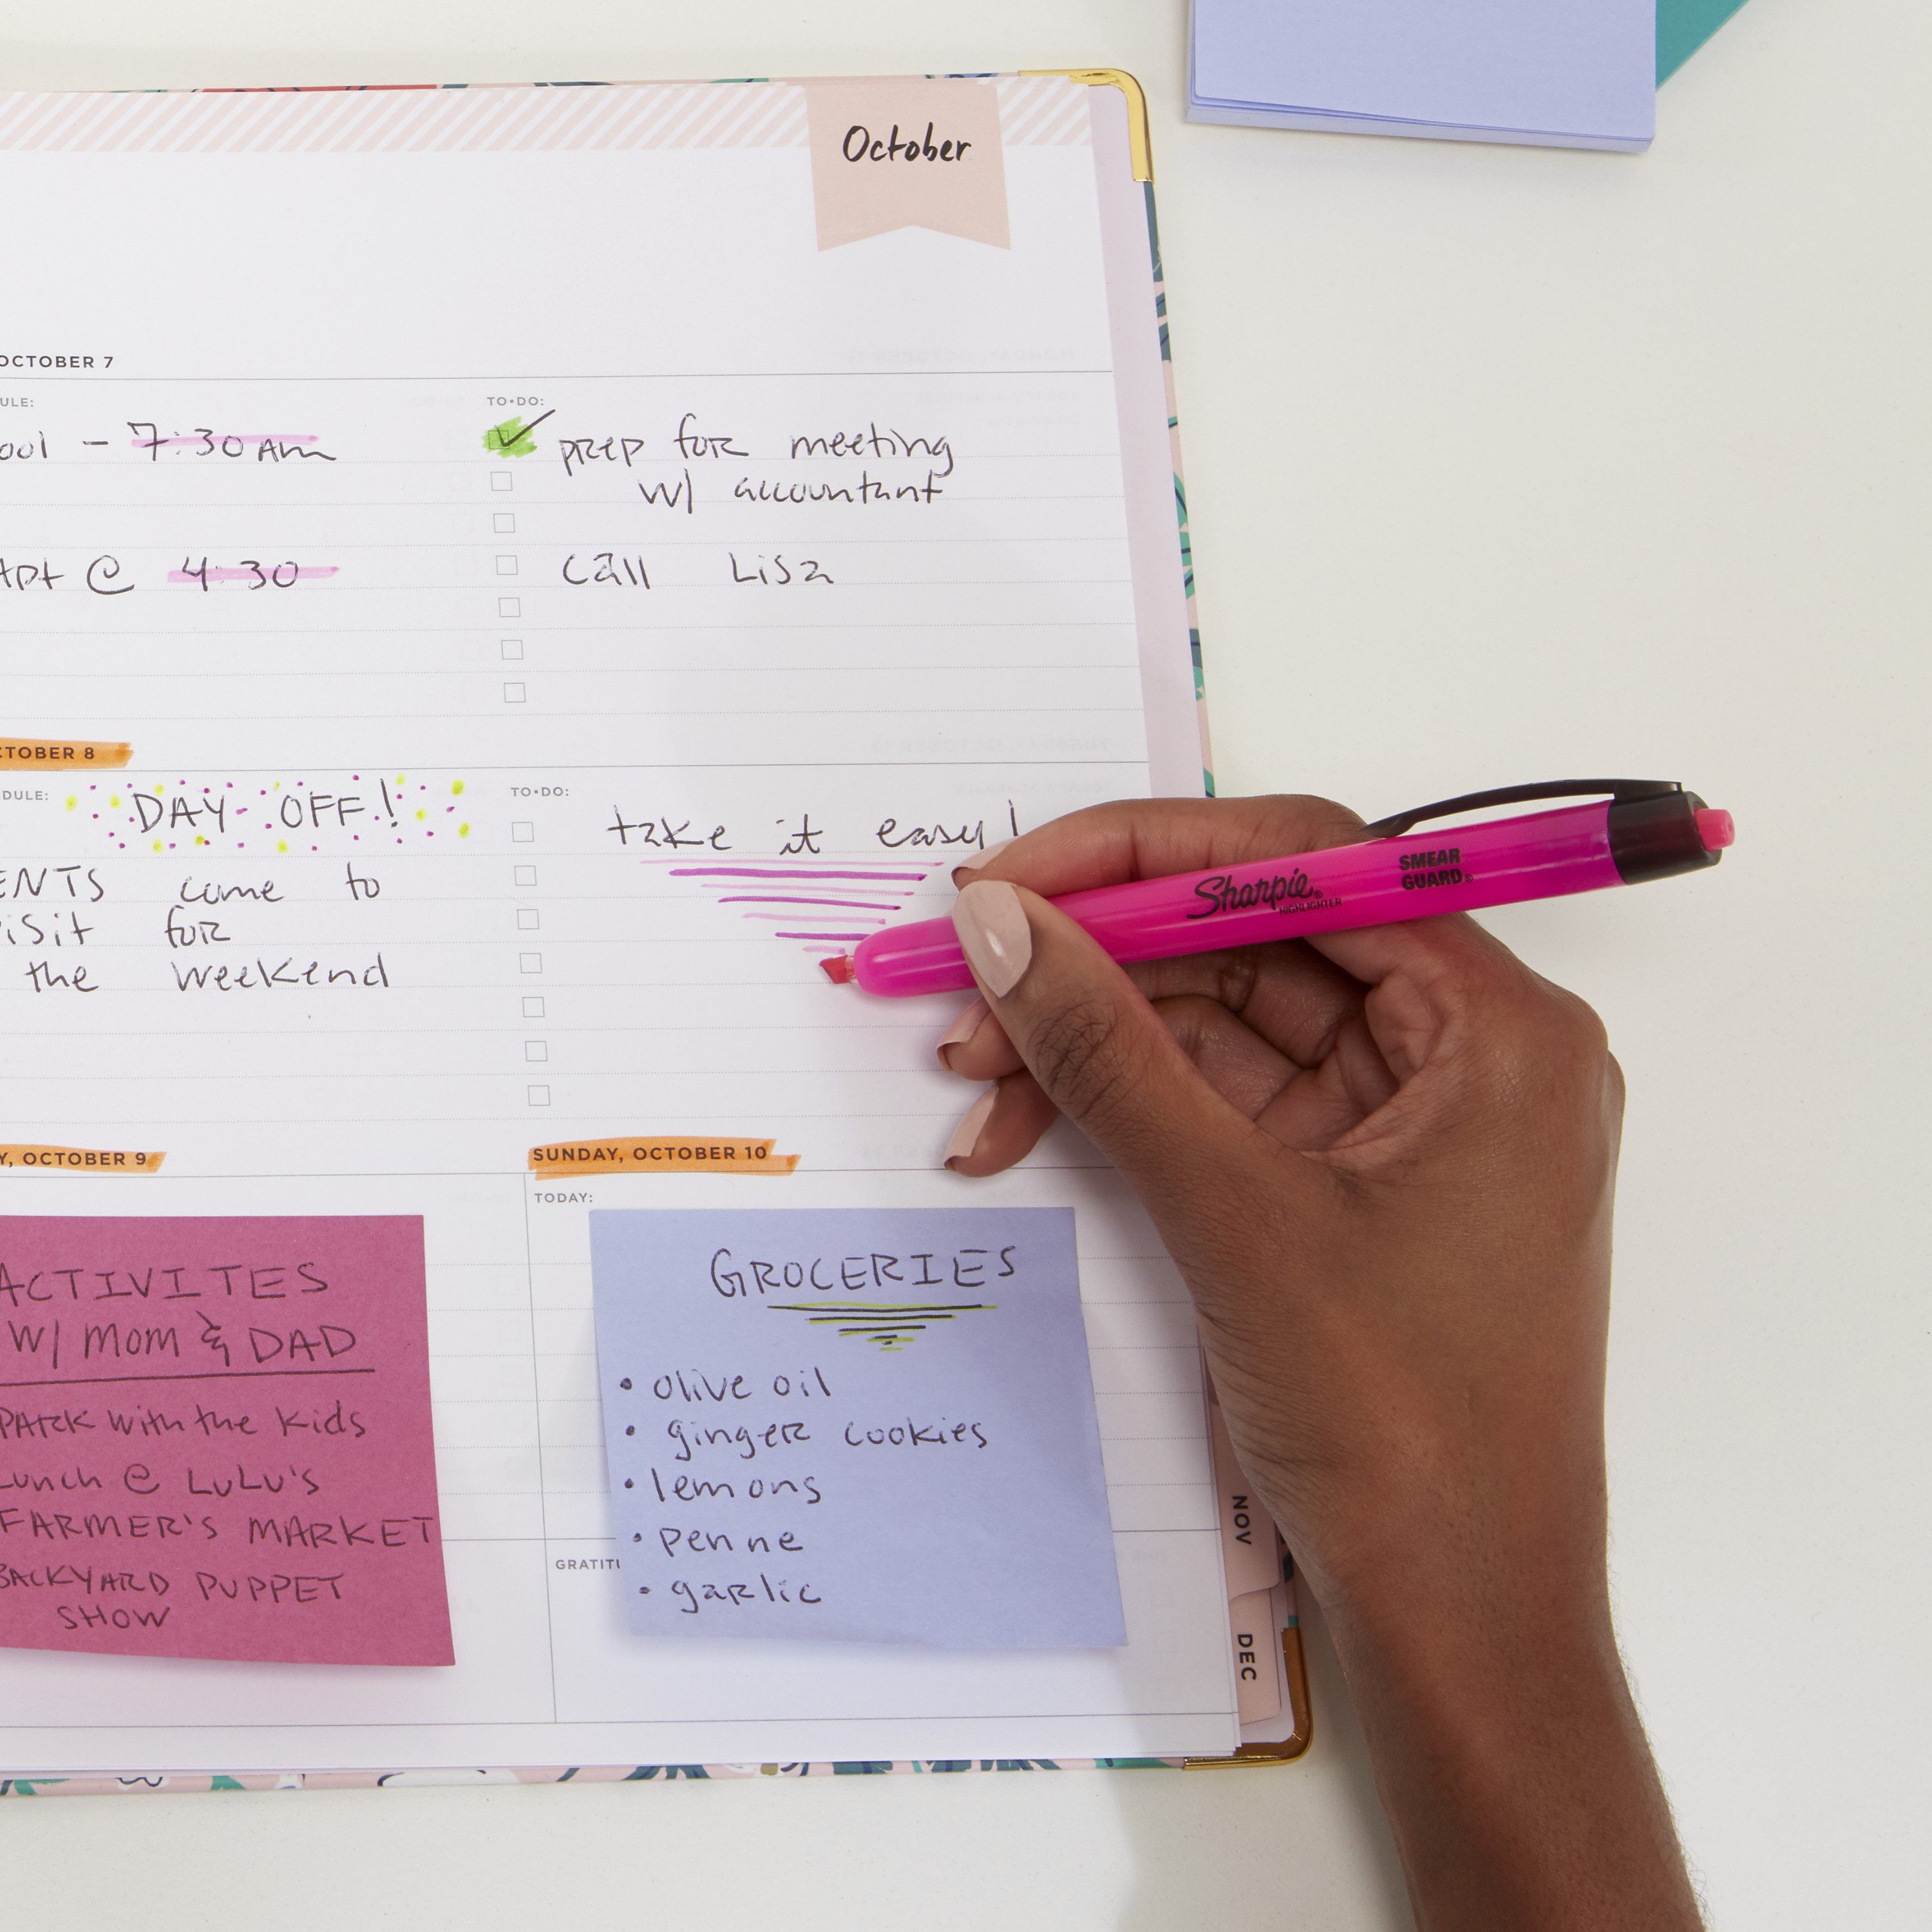 October
OCTOBER 7
TO•DO:
7:30 AM
prep for meeting
w/ accountant
@ 4:30
call Lisa
OCTOBER 8
TO•DO:
DAY OFF!
take it easy!
come to
for
the weekend
Sharpie®
HIGHLIGHTER
SMEAR
GUARD®
OCTOBER 9
SUNDAY, OCTOBER 10
TODAY:
ACTIVITES
W/ MOM & DAD
PARK with the kids
Lunch @ LuLu's
FARMER'S MARKET
BACKYARD PUPPET
SHOW
GROCERIES
• olive oil
• ginger cookies
• lemons
• penne
• garlic
NOV
DEC